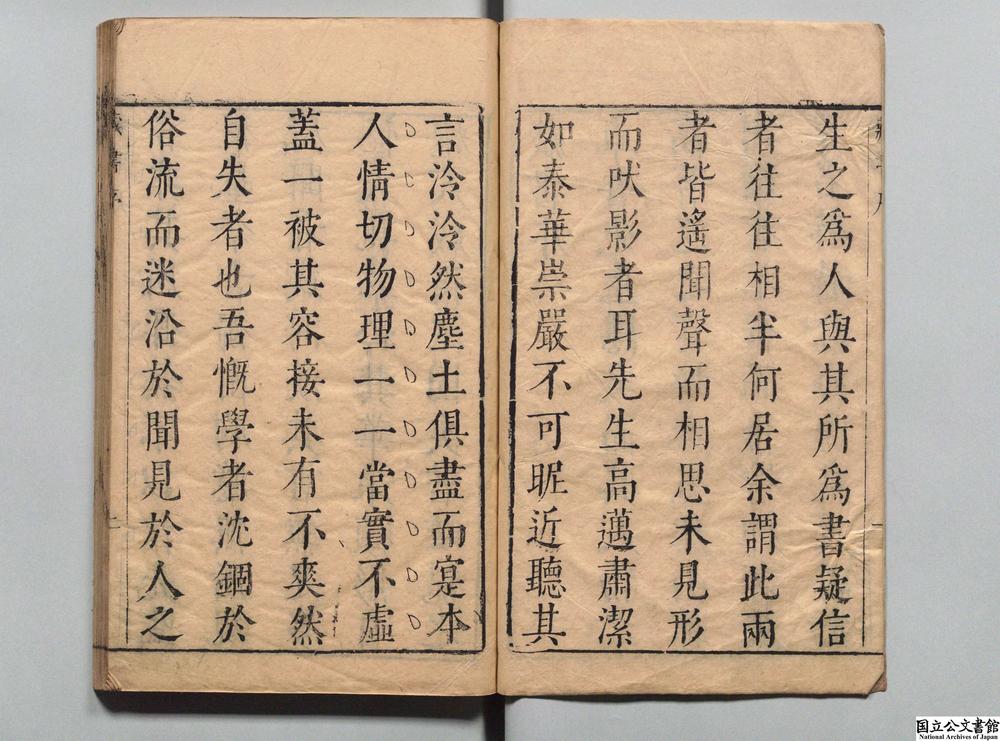 生之爲人與其所爲書疑信
者往往相半何居余謂此兩
者皆遙聞聲而相思未見形
而吠影者耳先生高邁肅潔
如泰華崇嚴不可昵近聽其
言泠泠然塵土俱盡而寔本
人情切物理一一當實不虛
蓋一被其容接未有不爽然
自失者也吾慨學者沈錮於
俗流而迷沿於聞見於人之
國立公文書館
National Archives of Japan